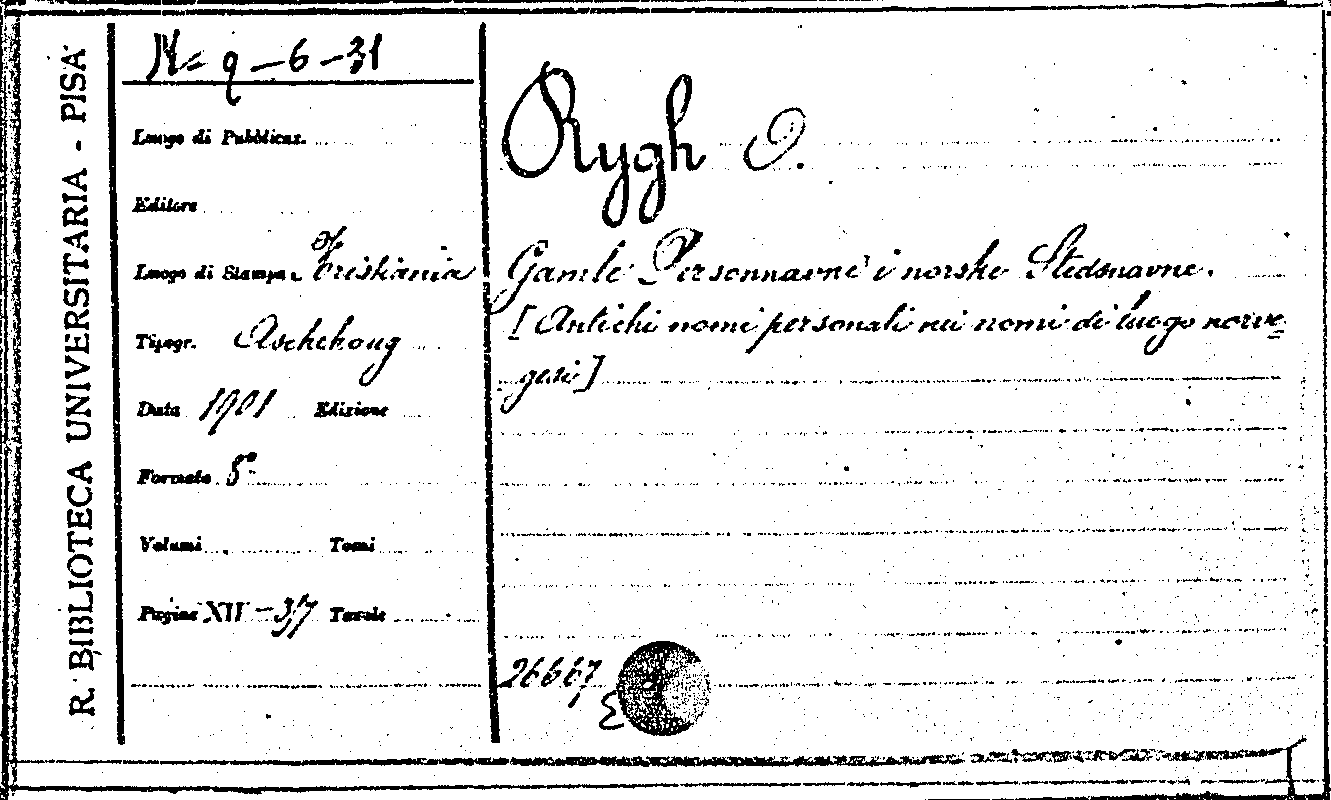 R. BIBLIOTECA UNIVERSITARIA - PISA
N= q-6-31
Luogo di Pubblicaz.
Editore
Luogo di Stampa Kristiania
Tipogr. Aschehoug
Data 1901 Edizione
Formato 8°
Volumi Tomi
Pagine XII - 357 Tavole
Rygh O.
Gamle Personnavne i norske Stedsnavne.
[Antichi nomi personali nei nomi di luogo norve=
gesi]
26667